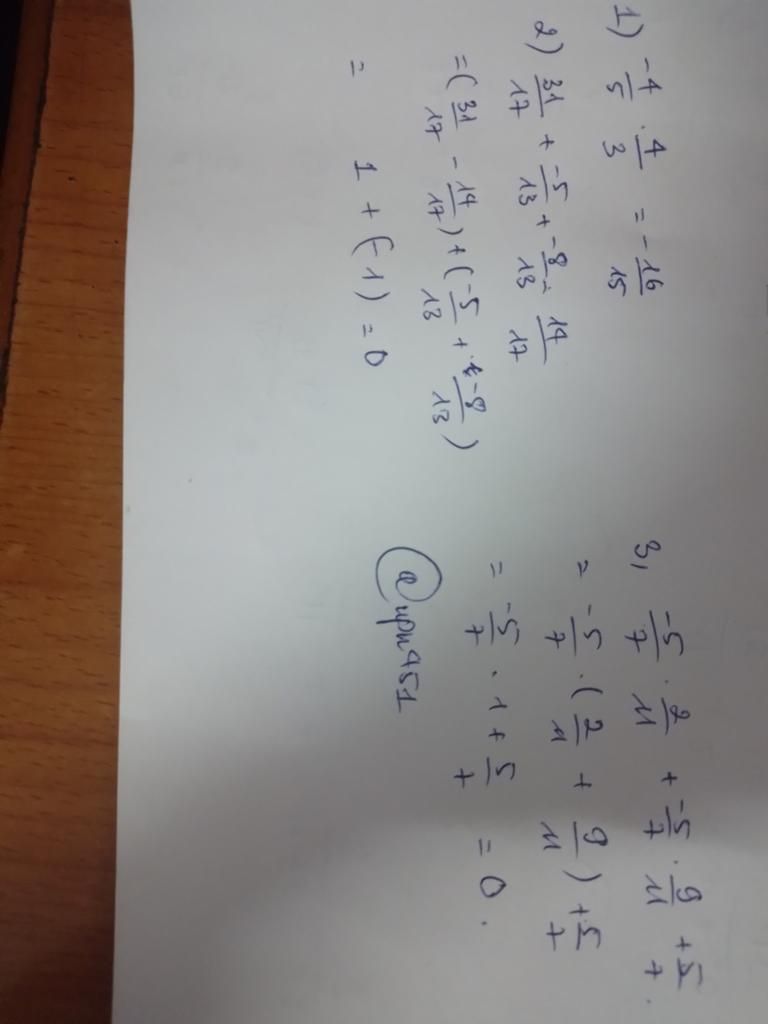 1) -4/5 · 4/3 = -16/15
2) 31/17 + -5/13 + -8/13 - 14/17
= (31/17 - 14/17) + (-5/13 + -8/13)
= 1 + (-1) = 0
3, -5/7 · 2/11 + -5/7 · 9/11 + 5/7.
= -5/7 · (2/11 + 9/11) + 5/7
= -5/7 · 1 + 5/7 = 0.